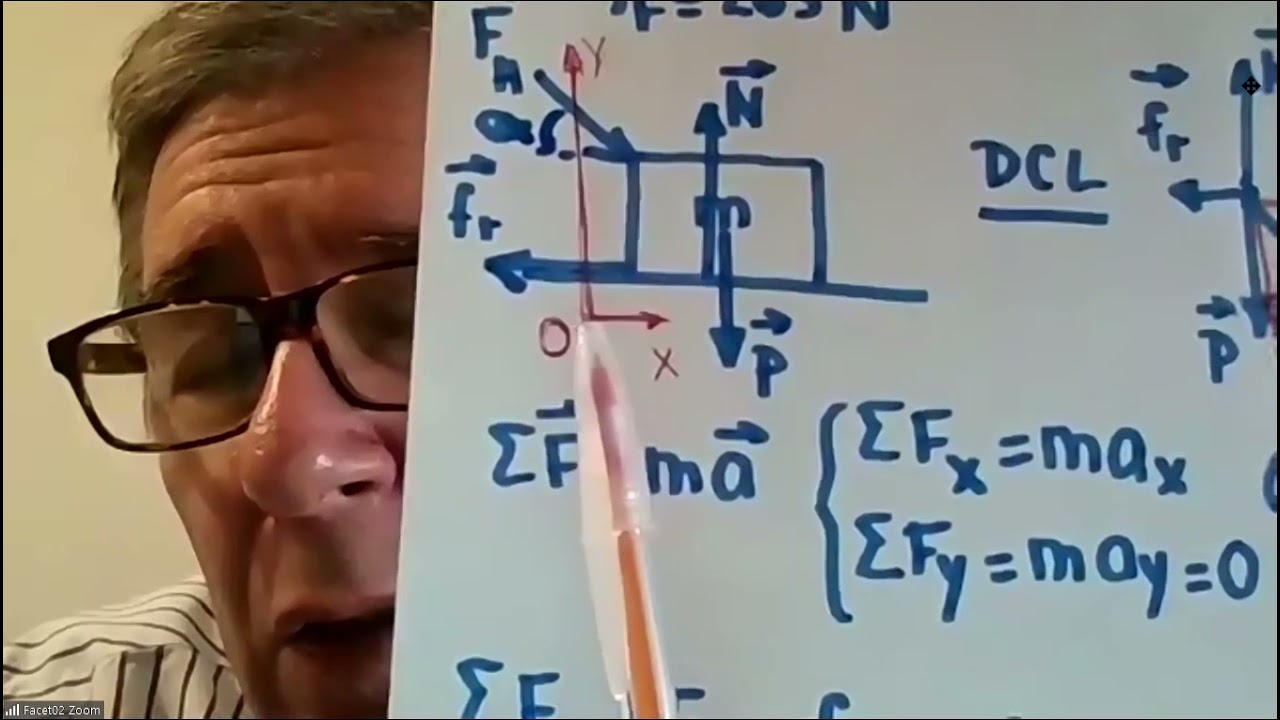 F
H
Y
α
N
fr
m
O
X
P
DCL
fr
P
ΣF ma
ΣFx = max
ΣFy = may = 0
ΣF
Facet02 Zoom